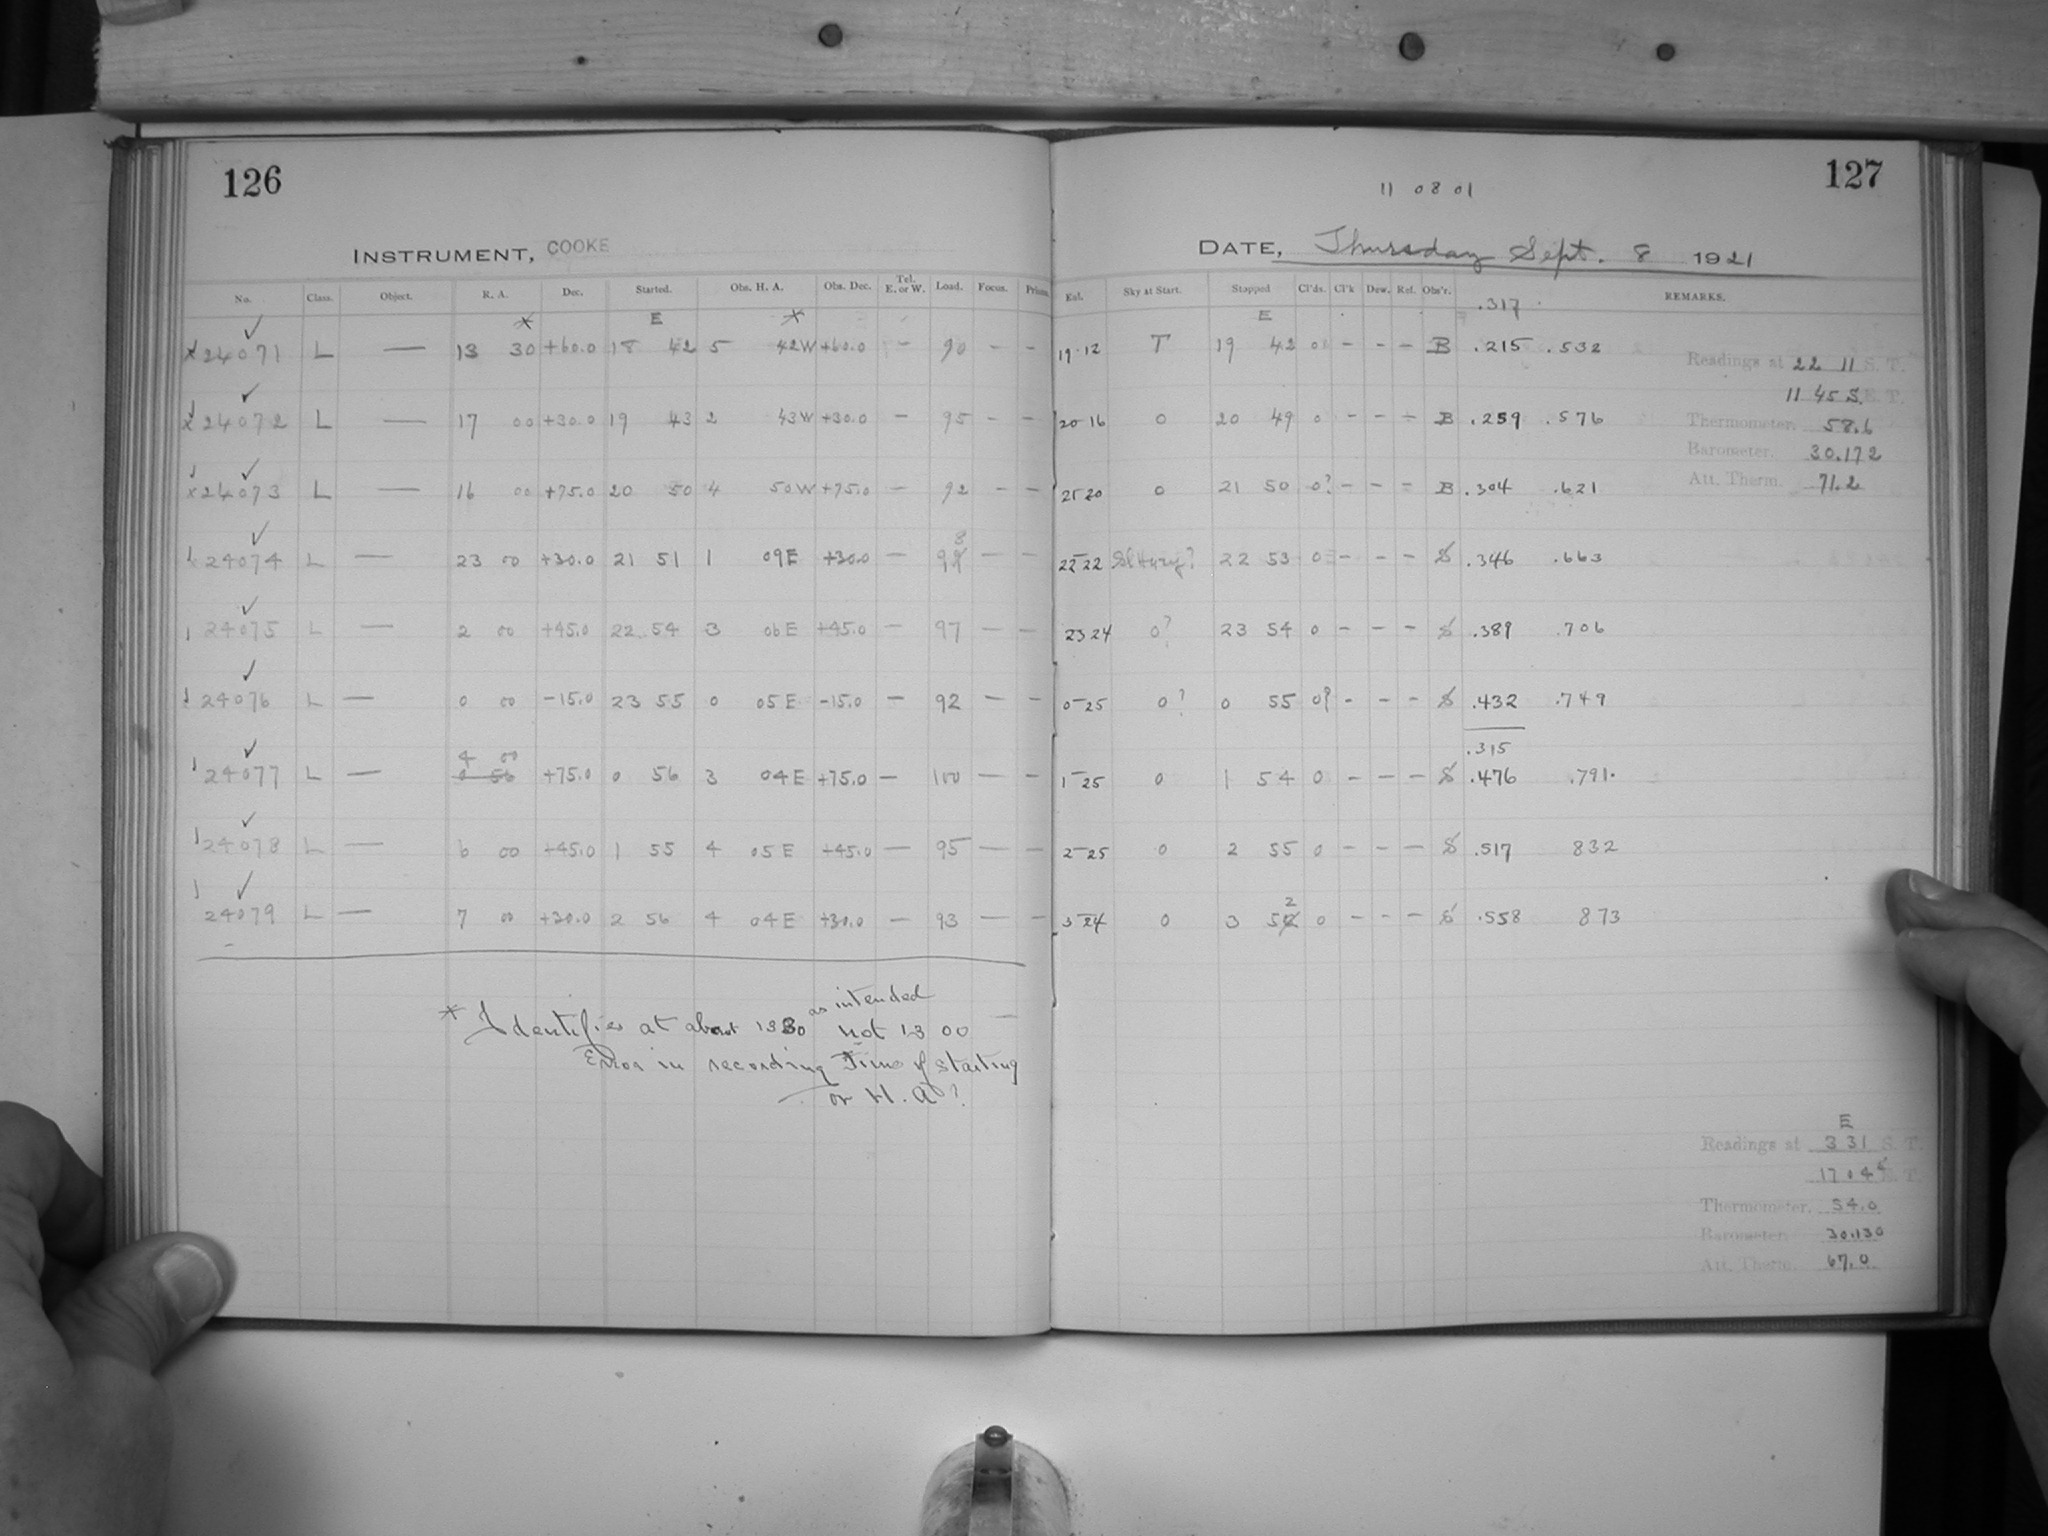 126
INSTRUMENT, COOKE
No. Class. Object. R. A. Dec. Started. Obs. H. A. Obs. Dec. Tel. E. or W. Load. Focus. Prism.
* E *
x 24071 L — 13 30 +60.0 18 42 5 42W +60.0 — 90 — —
x 24072 L — 17 00 +30.0 19 43 2 43W +30.0 — 95 — —
x 24073 L — 16 00 +75.0 20 50 4 50W +75.0 — 92 — —
24074 L — 23 00 +30.0 21 51 1 09E +30.0 — 98 — —
24075 L — 2 00 +45.0 22 54 3 06E +45.0 — 97 — —
24076 L — 0 00 -15.0 23 55 0 05E -15.0 — 92 — —
4 00
24077 L — 0 56 +75.0 0 56 3 04E +75.0 — 100 — —
24078 L — 6 00 +45.0 1 55 4 05E +45.0 — 95 — —
24079 L — 7 00 +30.0 2 56 4 04E +30.0 — 93 — —
as intended
* Identifies at about 1330 not 13 00
Error in recording Time of starting
or H. A?
127
11 08 01
DATE, Thursday Sept. 8 1921
Sky at Start. Stopped Cl'ds. Cl'k Dew. Ref. Obs'r. REMARKS.
E .317
19.12 T 19 42 0 - - - B .215 .532
20 16 0 20 49 0 - - - B .259 .576
21 20 0 21 50 0? - - - B .304 .621
22 22 Sl Hazy? 22 53 0 - - - S .346 .663
23 24 0? 23 54 0 - - - S .389 .706
0-25 0? 0 55 0? - - - S .432 .749
.315
1-25 0 1 54 0 - - - S .476 .791.
2-25 0 2 55 0 - - - S .517 832
3-24 0 3 52 0 - - - S .558 873
Readings at 22 11 S. T.
11 45 S. E. T.
Thermometer. 58.6
Barometer. 30.172
Att. Therm. 71.2
E
Readings at 3 31 S. T.
17 04 E. T.
Thermometer. 54.0
Barometer. 30.130
Att. Therm. 67.0